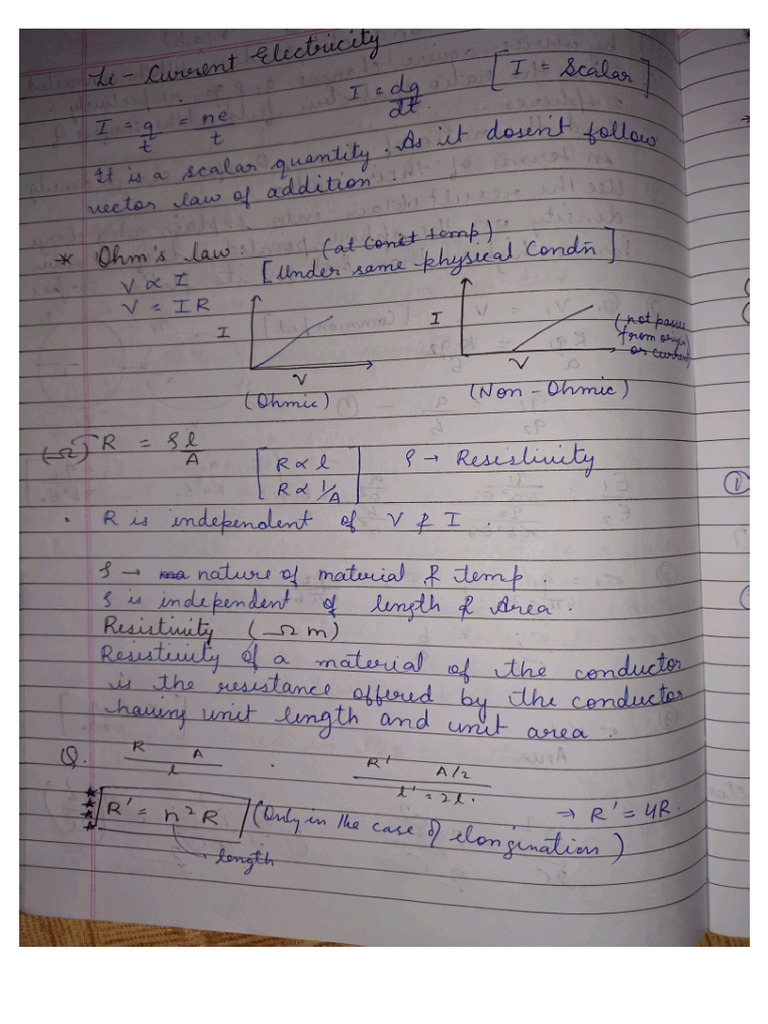 Le - Current Electricity
I = q/t = ne/t   I = dq/dt.   [I = Scalar]
It is a scalar quantity. As it dosen't follow
vector law of addition
* Ohm's law: (at const temp)
V ∝ I   [Under same physical Condn]
V = IR
I   I   (not pass
from origin
or current)
V   V
(Ohmic)   (Non-Ohmic)
(Ω) R = ρl/A   [R ∝ l   ρ → Resistivity
R ∝ 1/A]
. R is independent of V & I.
ρ → nature of material & temp.
ρ is independent of length & Area.
Resistivity (Ωm)
Resistivity of a material of the conductor
is the resistance offered by the conductor
having unit length and unit area.
Q. R   A   .   R'   A/2
l   l' = 2l.
R' = n²R (Only in the case of elongination)   → R' = 4R.
length
①